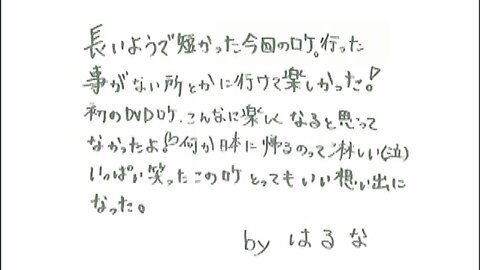 長いようで短かった今回のロケ。行った
事がない所とかに行けて楽しかった!
初のDVDロケ、こんなに楽しくなると思って
なかったよ!何か日本に帰るのって淋しい(泣)
いっぱい笑ったこのロケとってもいい想い出に
なった。
by はるな